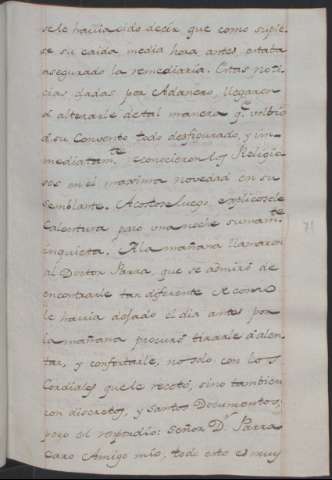 sele havia oido decir que como supie-
se su caida media hora antes, estaba
asegurado la remediaria. Estas noti-
cias dadas por Adanero, llegaron
á alterarle de tal manera q.e volbió
á su Convento todo desfigurado, y in-
mediatam.te conocieron los Religio-
sos en el maxima novedad en su
semblante. Acostose luego, explicosele
Calentura, paso una noche sumam.te
inquieta. A la mañana llamaron
al Doctor Parra, que se admiró de
encontrarle tan diferente de como
le havia dejado el dia antes por
la mañana procuró tirarle á alen-
tar, y confortarle, no solo con los
Cordiales que le recetó, sino tambien
con discretos, y santos Documentos,
pero él respondio: Señor D.r Parra
caro Amigo mio, todo esto es muy
71